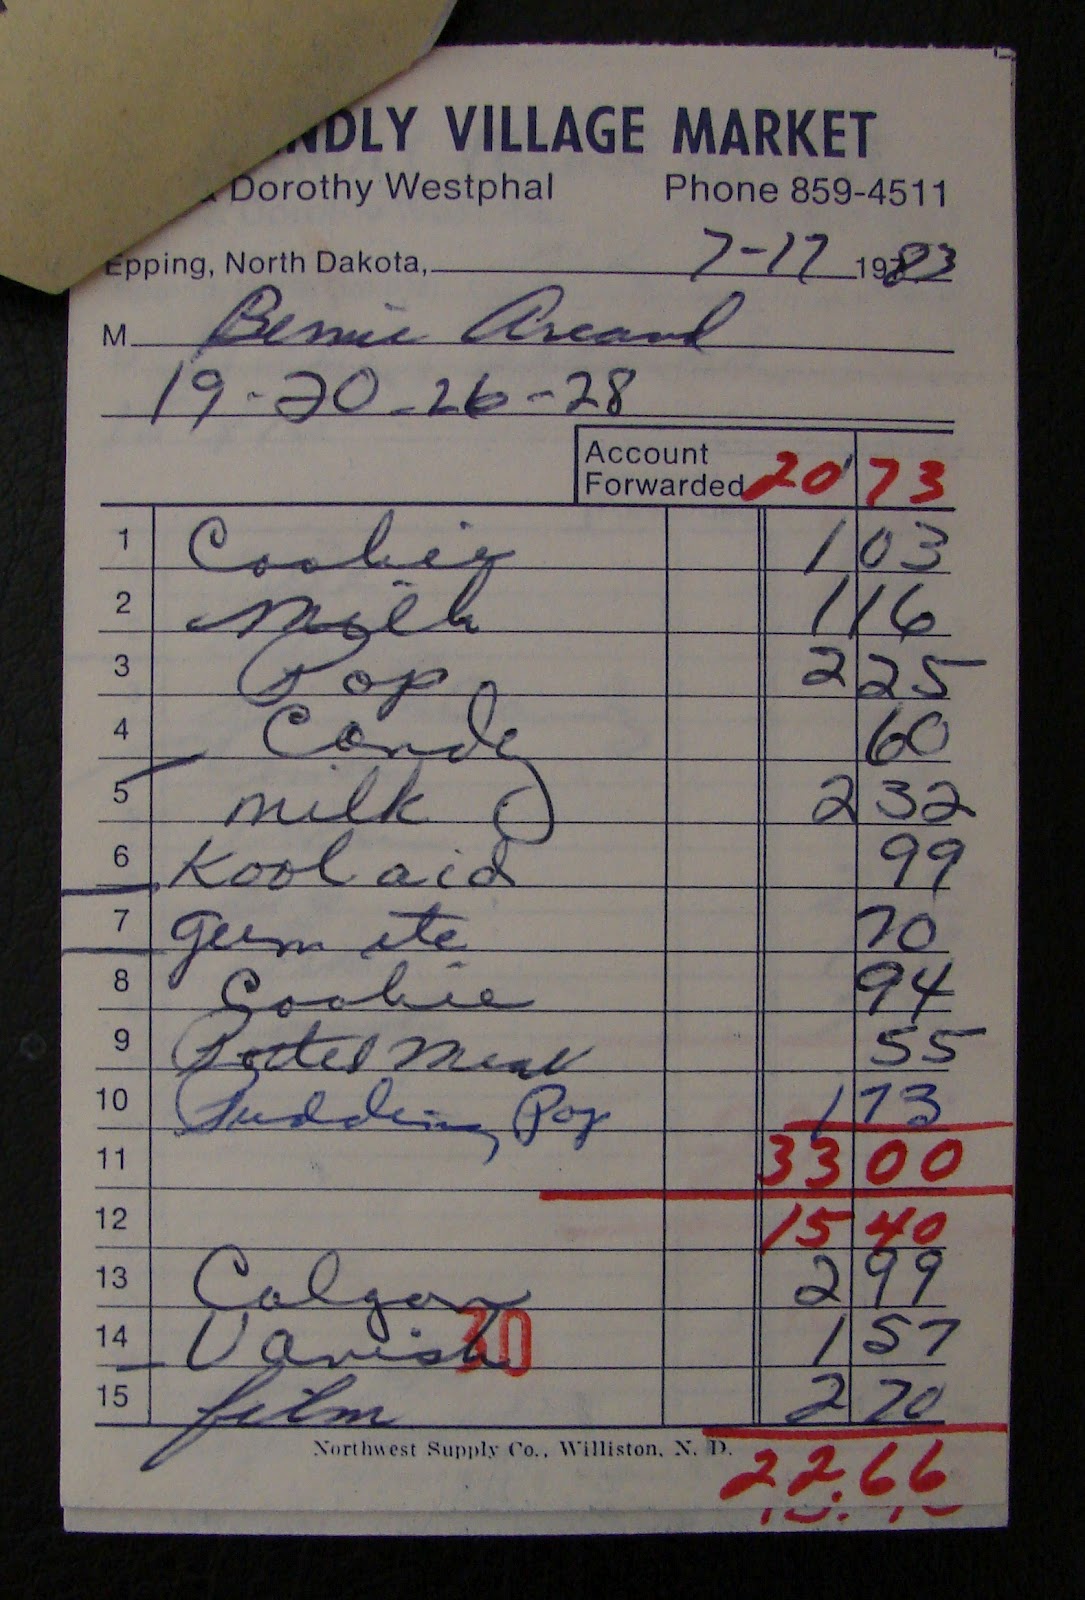 NDLY VILLAGE MARKET
& Dorothy Westphal Phone 859-4511
Epping, North Dakota, 7-17 1983
M Bernie Arcand
19-20-26-28
Account Forwarded 20 73
1 Cookie 1 03
2 Milk 1 16
3 Pop 2 25
4 Candy 60
5 milk 2 32
6 Kool aid 99
7 70
8 Cookie 94
9 Potted Meat 55
10 Pudding Pop 1 73
11 33 00
12 15 40
13 Calgon 2 99
14 Vanish 1 57
30
15 film 2 70
Northwest Supply Co., Williston, N. D.
22.66